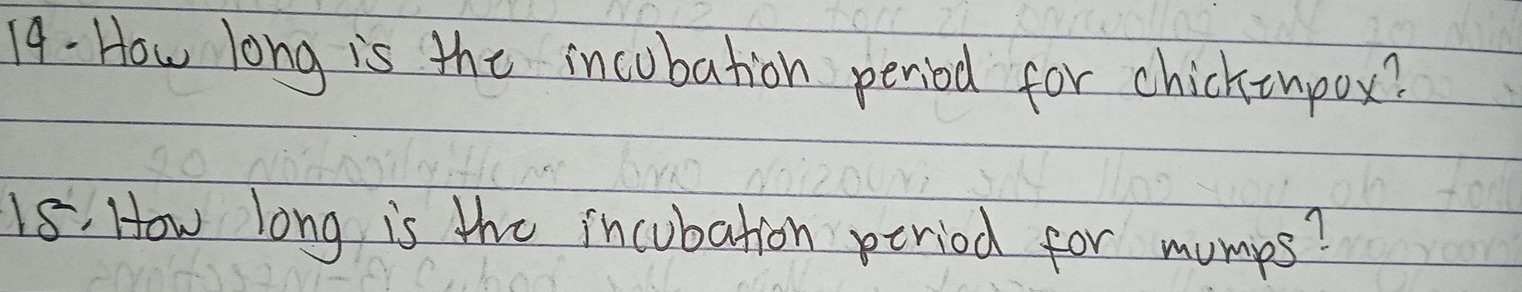 14-How long is the incubation period for chickenpox?
15. How long is the incubation period for mumps?